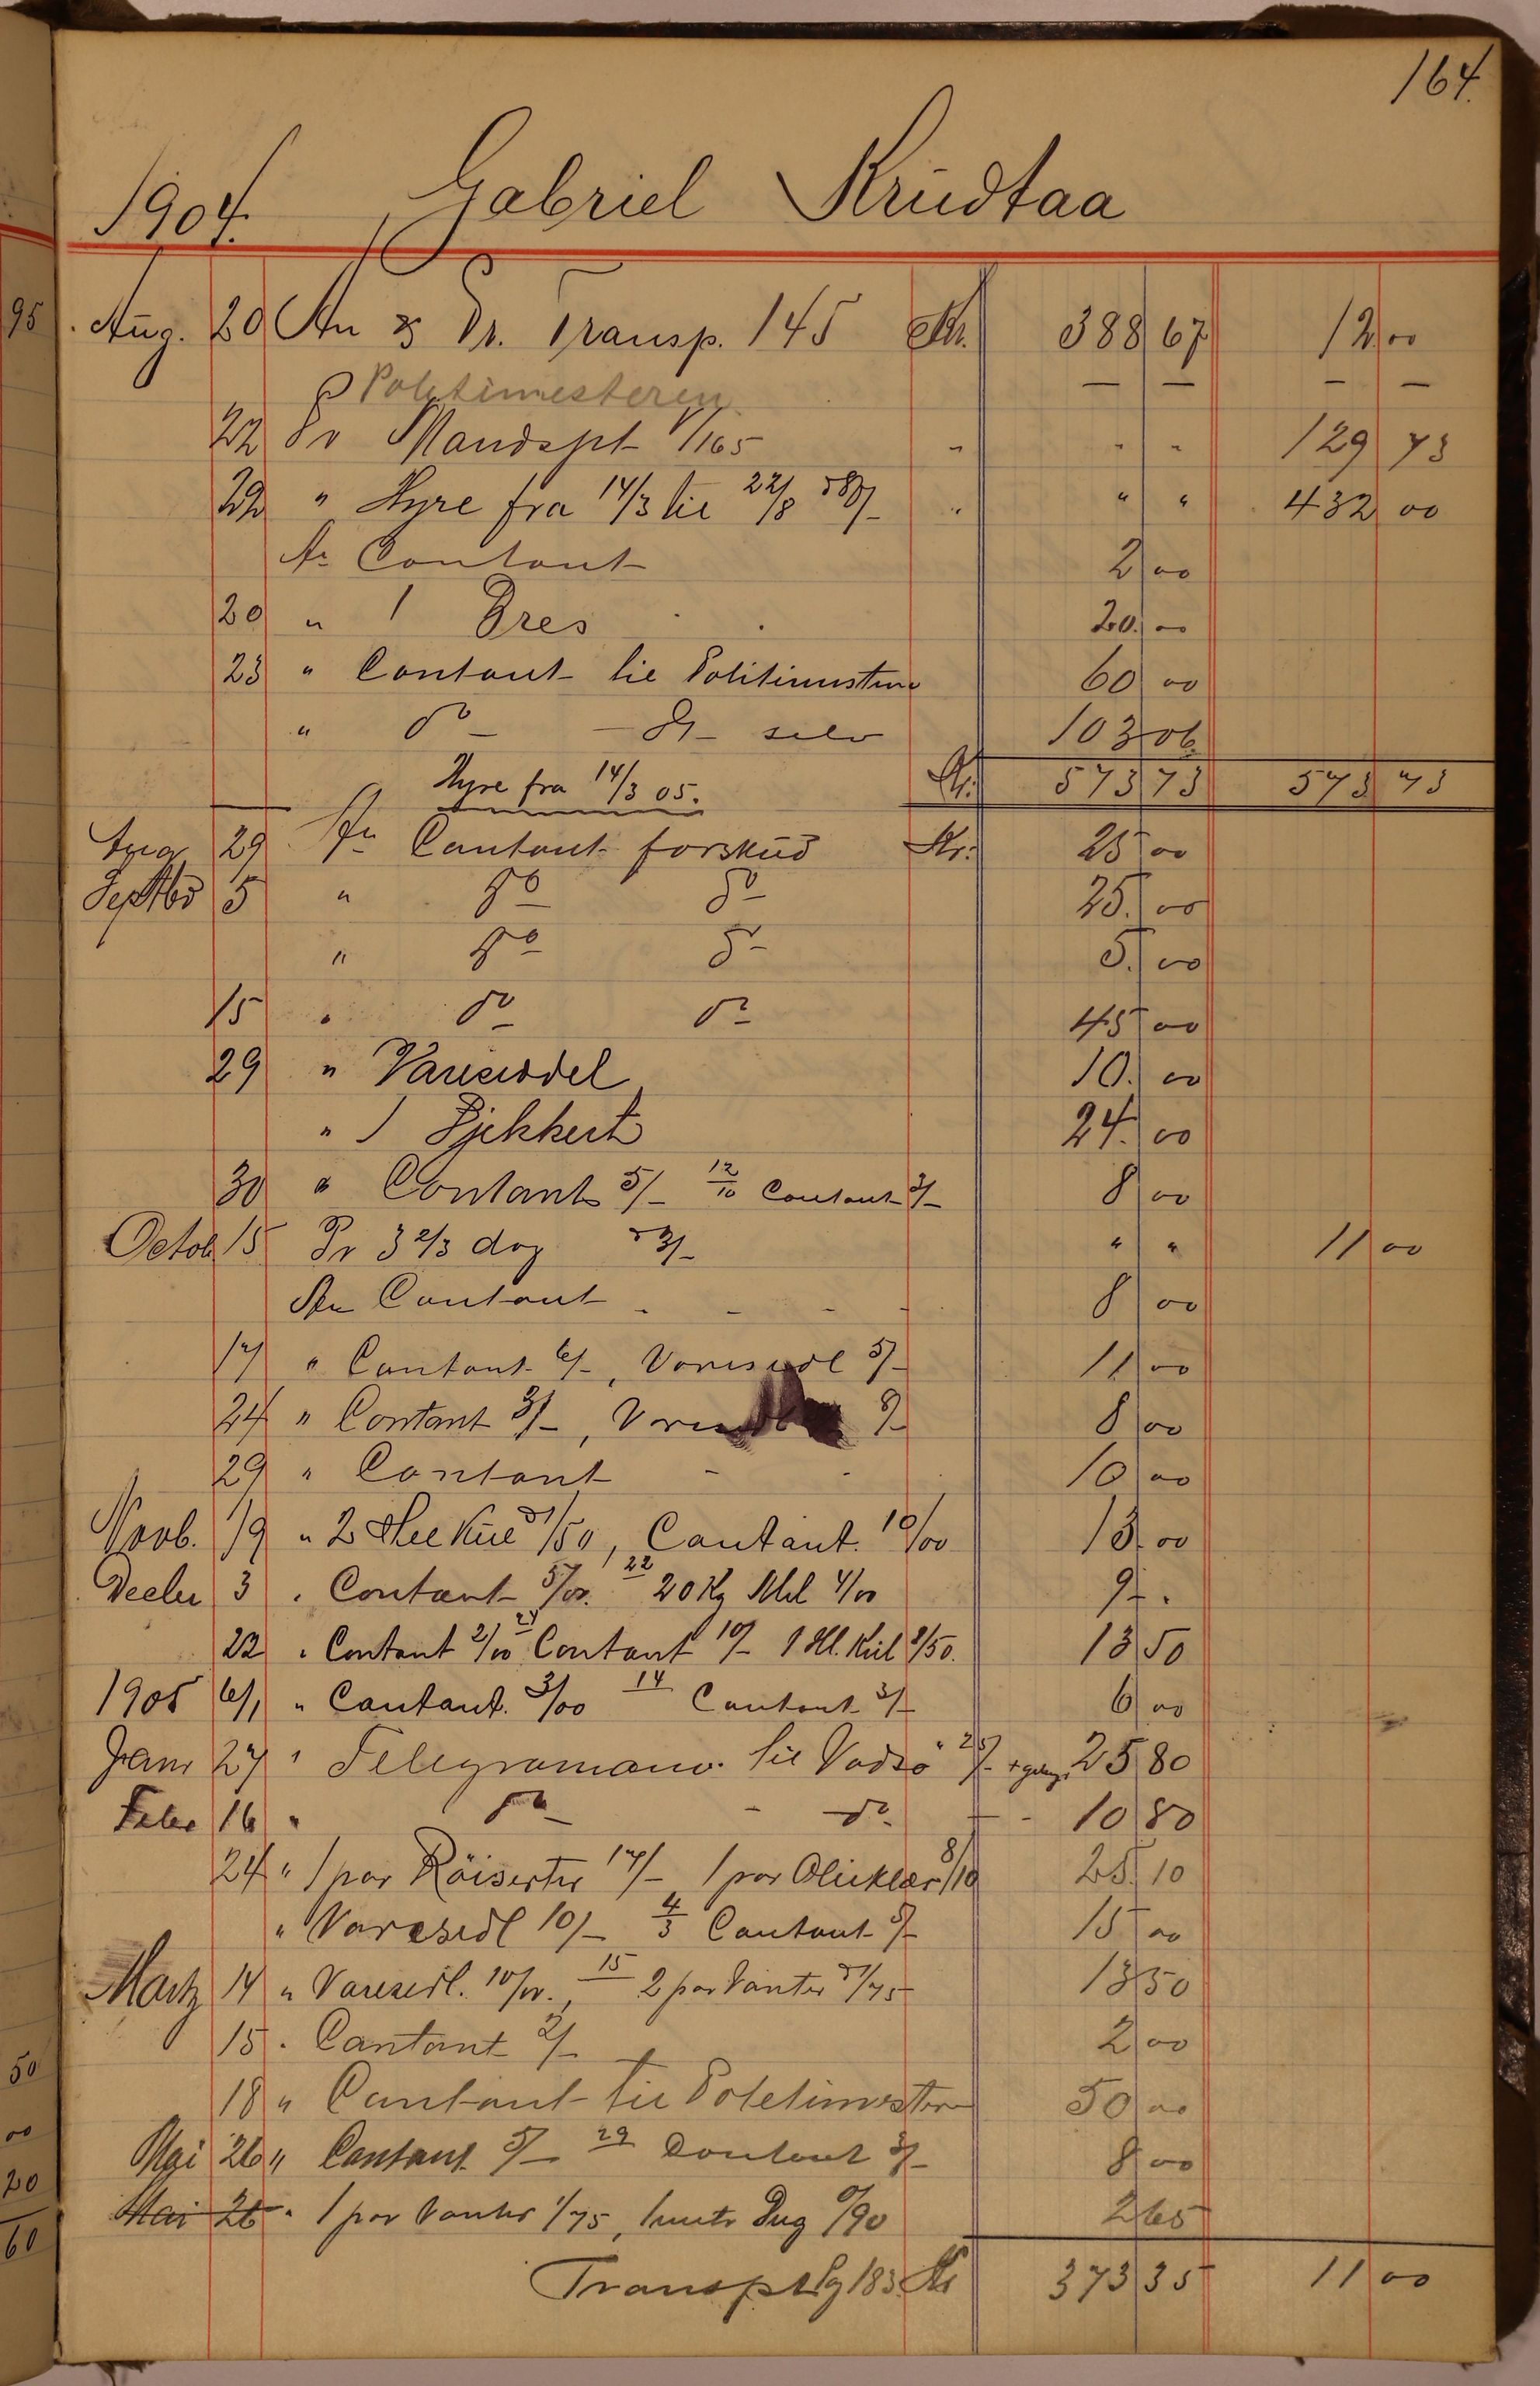 164.
1904. Gabriel Krudtaa
95 Aug. 20 An & Pr. Transp. 145 Kr. 388 67 12 00
Politimesteren — — — —
22 Pr Mandskt 1/165 " " " 129 73
22 " Hyre fra 14/3 til 22/8 à 80/- " " " 432 00
An Contant 2 00
20 " 1 Dres 20. 00
23 " Contant til Politimesteren 60 00
" do - selv 103 06
Hyre fra 14/3 05. Kr. 573 73 573 73
Aug 29 An Contant forskud Kr. 25 00
Septbr 5 " do do 25. 00
" do do 5. 00
15 " do do 45 00
29 " Vareseddel 10. 00
" 1 Pjekkert 24. 00
30 " Contant 5/- 12/10 Contant 3/- 8 00
Octob 15 Pr 3 2/3 dag à 3/- " " 11 00
An Contant - - - - 8 00
17 " Contant 6/-, Varesedl 5/- 11 00
24 " Contant 3/-, 5/- 8 00
29 " Contant - - 10 00
Novb. 19 " 2 Kul à 1/50, Contant. 10/00 13. 00
Decbr 3 " Contant 5/00. 22 20 Kg Mel 4/00 9 - .
22 " Contant 2/00 24 Contant 10/- 1 Hl. Kul 1/50. 13 50
1905 6/1 " Contant. 3/00 14 Contant 3/- 6 00
Janr 27 " Telegramanv. til Vadsø 25/- 25 80
Febr 16 " do - do - 10 80
24 " 1 par Röiserter 17/- 1 par Olieklær 8/10 25. 10
" Varesedl 10/- 4/3 Contant 5/- 15 00
Martz 14 " Varesedl. 10/00., 15 2 par Vanter à 1/75 13 50
50 15 " Contant 2/- 2 00
18 " Contant til Politimesteren 50 00
00 Mai 26 " Contant 5/- 29 Contant 3/- 8 00
20 Mai 26 " 1 par Vanter 1/75, 1 metr Dug 0/90 2 65
60
Transpt Pg 183 Kr 373 35 11 00